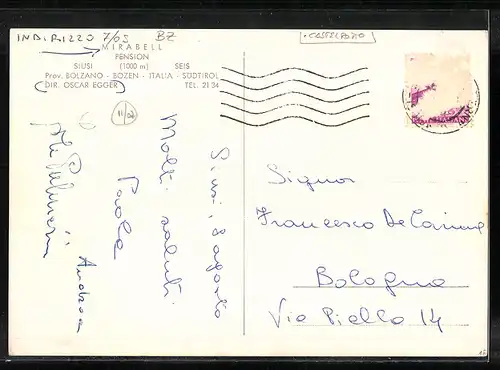 INDIRIZZO 7/05 BZ
CASTELROTTO
MIRABELL
PENSION
SIUSI (1000 m) SEIS
Prov. BOLZANO - BOZEN - ITALIA - SÜDTIROL
(DIR. OSCAR EGGER) TEL. 21 34
Siusi, 8 agosto
Molti saluti
Paola
Andrea
Signor
Francesco De
Bologna
Via Piella 14